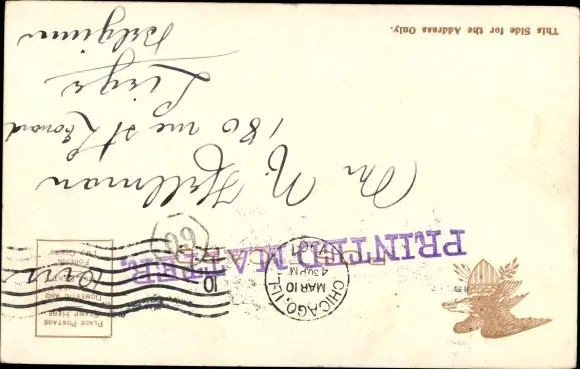 PLACE POSTAGE
STAMP HERE
DOMESTIC AND
FOREIGN
PRINTED MATTER.
CHICAGO, ILL.
MAR 10
4 30 PM
10
60
Mr N. Hellman
180 rue St Léonard
Liège
Belgium
This Side for the Address Only.